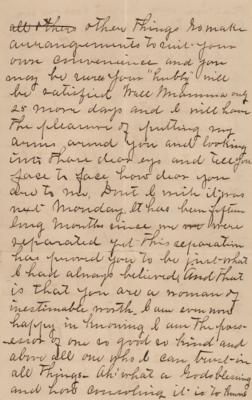 all others other things to make
arrangements to suit your
own convenience and you
may be sure your "hubby" will
be satisfied. Well Mamma only
25 more days and I will have
the pleasure of putting my
arms around you and looking
into those dear eyes and tell you
face to face how dear you
are to me. Don't I wish it was
next Monday. It has been fifteen
long months since we were
separated yet this separation
has proved you to be just what
I had always believed, And that
is that you are a woman of
inestimable worth. I am even now
happy in knowing I am the poss-
essor of one so good so kind and
above all one who I can trust in
all things. Ah! what a Godsblessing
and how consoling it is to know